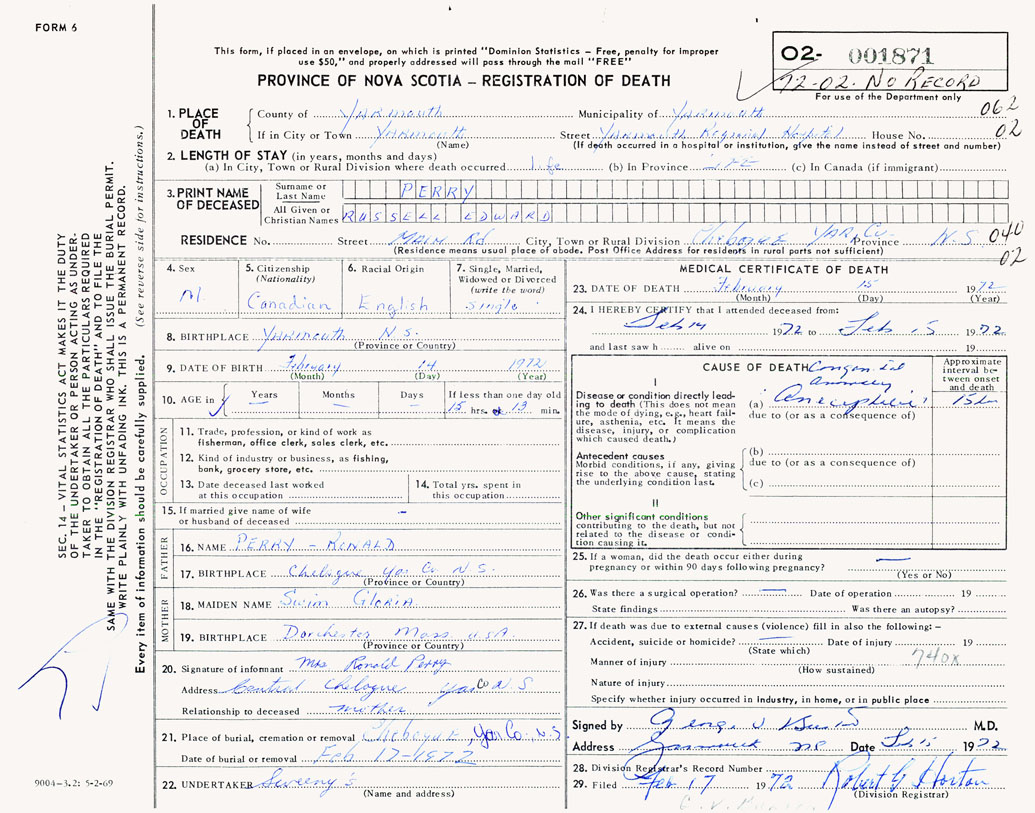 FORM 6
This form, if placed in an envelope, on which is printed "Dominion Statistics – Free, penalty for improper
use $50," and properly addressed will pass through the mail "FREE"
PROVINCE OF NOVA SCOTIA – REGISTRATION OF DEATH
02- 001871
72-02- NO RECORD
For use of the Department only
062
02
1. PLACE OF DEATH
County of Yarmouth Municipality of Yarmouth
If in City or Town Yarmouth Street Yarmouth Regional Hospital House No.
(Name) (If death occurred in a hospital or institution, give the name instead of street and number)
2. LENGTH OF STAY (in years, months and days)
(a) In City, Town or Rural Division where death occurred life (b) In Province life (c) In Canada (if immigrant)
3. PRINT NAME OF DECEASED
Surname or Last Name PERRY
All Given or Christian Names RUSSELL EDWARD
RESIDENCE No. Street Main Rd City, Town or Rural Division Chebogue Yar. Co. Province N.S
(Residence means usual place of abode. Post Office Address for residents in rural parts not sufficient)
040
02
4. Sex M.
5. Citizenship (Nationality) Canadian
6. Racial Origin English
7. Single, Married, Widowed or Divorced (write the word) Single
8. BIRTHPLACE Yarmouth N.S.
(Province or Country)
9. DATE OF BIRTH February 14 1972
(Month) (Day) (Year)
10. AGE in Years Months Days If less than one day old
15 hrs. or 13 min.
OCCUPATION
11. Trade, profession, or kind of work as
fisherman, office clerk, sales clerk, etc.
12. Kind of industry or business, as fishing,
bank, grocery store, etc.
13. Date deceased last worked
at this occupation
14. Total yrs. spent in
this occupation
15. If married give name of wife
or husband of deceased –
FATHER
16. NAME PERRY – RONALD
17. BIRTHPLACE Chebogue Yar Co N.S.
(Province or Country)
MOTHER
18. MAIDEN NAME Swim Gloria
19. BIRTHPLACE Dorchester Mass U.S.A.
(Province or Country)
20. Signature of informant Mrs Ronald Perry
Address Central Chebogue Yar Co N.S
Relationship to deceased mother
21. Place of burial, cremation or removal Chebogue, Yar. Co. N.S
Date of burial or removal Feb 17-1972
22. UNDERTAKER Sweeny's
(Name and address)
MEDICAL CERTIFICATE OF DEATH
23. DATE OF DEATH February 15 1972
(Month) (Day) (Year)
24. I HEREBY CERTIFY that I attended deceased from:
Feb 14 1972 to Feb 15 1972
and last saw h alive on 19
CAUSE OF DEATH Congenital
Approximate interval between onset and death
I
Disease or condition directly leading to death (This does not mean the mode of dying, e.g., heart failure, asthenia, etc. It means the disease, injury, or complication which caused death.)
(a)
due to (or as a consequence of)
Antecedent causes
Morbid conditions, if any, giving rise to the above cause, stating the underlying condition last.
(b)
due to (or as a consequence of)
(c)
II
Other significant conditions
contributing to the death, but not related to the disease or condition causing it.
25. If a woman, did the death occur either during
pregnancy or within 90 days following pregnancy? –
(Yes or No)
26. Was there a surgical operation? – Date of operation 19
State findings Was there an autopsy?
27. If death was due to external causes (violence) fill in also the following:–
Accident, suicide or homicide? – Date of injury 19
(State which)
740x
Manner of injury
(How sustained)
Nature of injury
Specify whether injury occurred in industry, in home, or in public place
Signed by M.D.
Address Date Feb 15 1972
28. Division Registrar's Record Number
29. Filed Feb 17 1972 Robert G Horton
(Division Registrar)
SEC. 14 – VITAL STATISTICS ACT MAKES IT THE DUTY
OF THE UNDERTAKER OR PERSON ACTING AS UNDER-
TAKER TO OBTAIN ALL THE PARTICULARS REQUIRED
IN THE "REGISTRATION OF DEATH" AND TO FILE THE
SAME WITH THE DIVISION REGISTRAR WHO SHALL ISSUE THE BURIAL PERMIT.
WRITE PLAINLY WITH UNFADING INK. THIS IS A PERMANENT RECORD.
Every item of information should be carefully supplied. (See reverse side for instructions.)
9004-3.2: 5-2-69